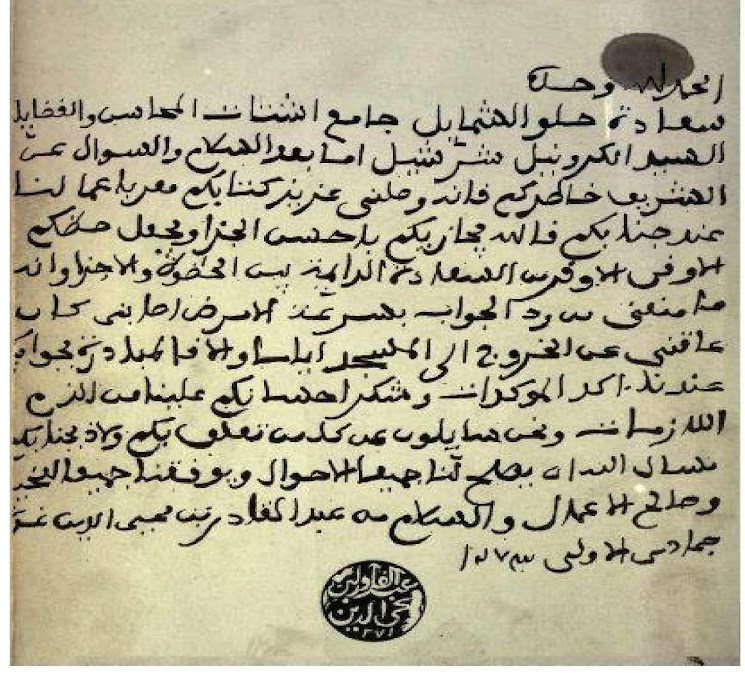 الحمد لله وحده
سعادة حلو الشمايل جامع اشتات المحاسن والفضايل
السيد الكرونيل شرشيل اما بعد السلام والسوال عن
الشريف خاطركم فانه وصلني عزيز كتابكم معربا عما لنا
عند جنابكم فالله يجازيكم باحسن الجزا ويجعل حظكم
الاوفى الاوفر من السعادة الدايمة بين الحضوة والاحترا وانه
ما منعني من رد الجواب بسرعة الا مرض اصابني كما
عاقني عن الخروج الى المسجد اياما والا فالمبادرة بجوابكم
عندنا من اكد الموكدات وشكر احسانكم علينا من الزم
اللازمات ونحن سايلون عن كل من تعلق بكم ولاذ بجنابكم
نسال الله ان يصلح لنا جميعا الاحوال ويوفقنا جميعا للخير
وصالح الاعمال والسلام من عبد القادر بن محيي الدين غرة
جمادى الاولى سنة
عبد القادر بن
محيي الدين
١٢٧١